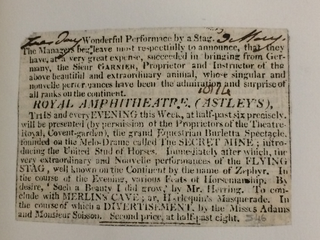 Tues Day Wonderful Performace by a Stag. 3 May.
The Managers beg leave most respectfully to announce, that they
have, at a very great expense, succeeded in bringing from Ger-
many, the Sieur GARNIER, Proprietor and Instructor of the
above beautiful and extraordinary animal, whose singular and
nouvelle performances have been the admiration and surprise of
all ranks on the continent.
1814
ROYAL AMPHITHEATRE, (ASTLEY'S),
THIS and every EVENING this Week, at half-past six precisely,
will be presented (by permission of the Proprietors of the Theatre-
Royal, Covent-garden), the grand Equestrian Burletta Spectacle,
founded on the Melo-Drame called The SECRET MINE; intro-
ducing the United Stud of Horses. Immediately after which, the
very extraordinary and Nouvelle performances of the FLYING
STAG, well known on the Continent by the name of Zephyr. In
the course of the Evening, various Feats of Horsemanship. By
desire, 'Such a Beauty I did grow,' by Mr. Herring. To con-
clude with MERLIN'S CAVE; or, Harlequin's Masquerade. In
the course of which a DIVERTISEMENT, by the Misses Adams
and Monsieur Soisson. Second price, at half-past eight.